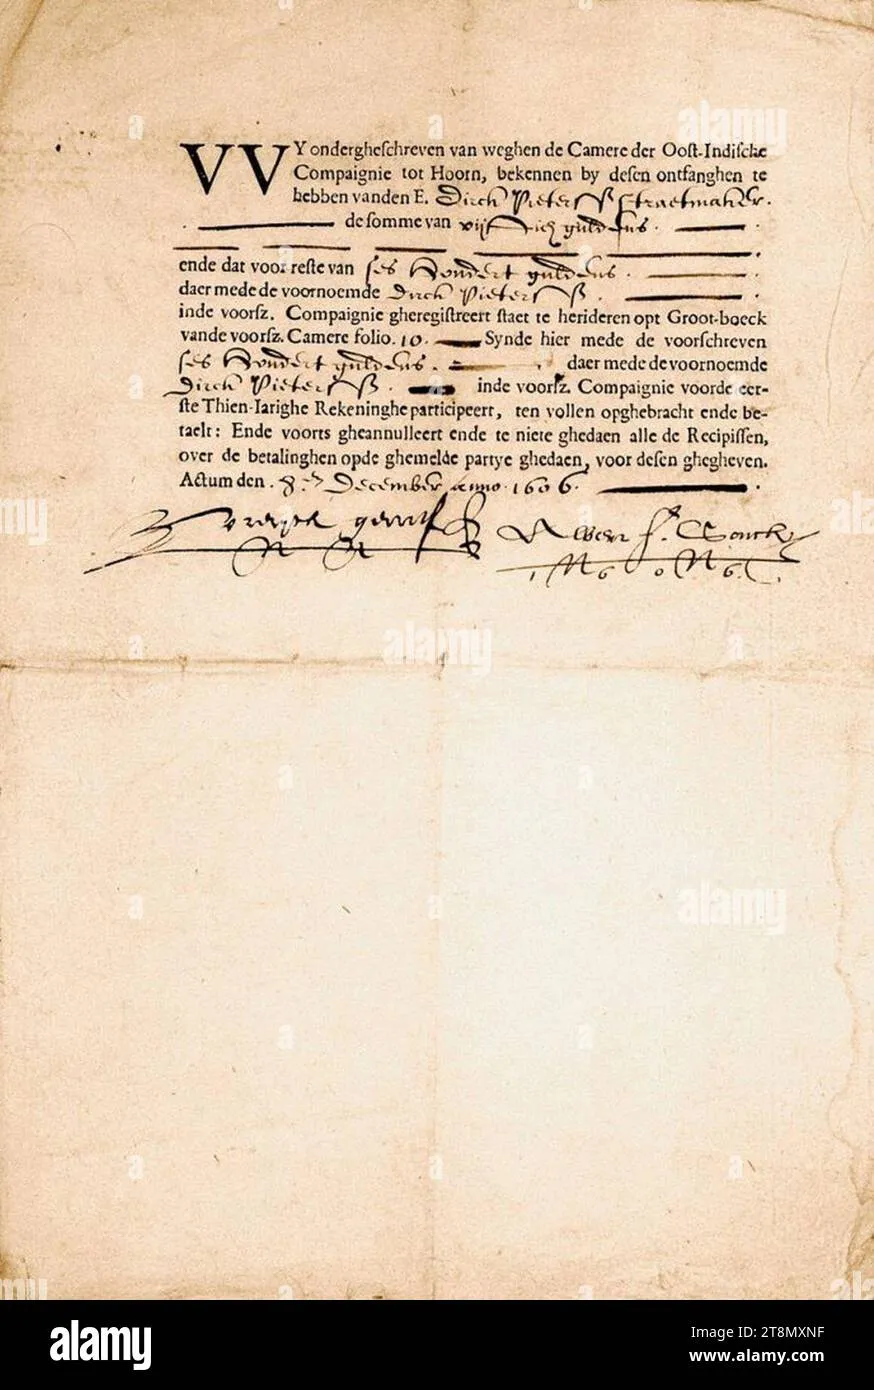 VVY ondergheſchreven van weghen de Camere der Ooſt-Indiſche
Compaignie tot Hoorn, bekennen by deſen ontfanghen te
hebben vanden E. Dirck Pieterſſ Straetmaker.
de ſomme van vijftich guldens.
ende dat voor reſte van ſes hondert guldens.
daer mede de voornoemde Dirck Pieterſſ.
inde voorſz. Compaignie gheregiſtreert ſtaet te herideren opt Groot-boeck
vande voorſz. Camere folio. 10. Synde hier mede de voorſchreven
ſes hondert guldens. daer mede de voornoemde
Dirck Pieterſſ. inde voorſz. Compaignie voorde eer-
ſte Thien-Iarighe Rekeninghe participeert, ten vollen opghebracht ende be-
taelt: Ende voorts gheannulleert ende te niete ghedaen alle de Recipiſſen,
over de betalinghen opde ghemelde partye ghedaen, voor deſen ghegheven.
Actum den. 8. December anno. 1606.
1606.
alamy
Image ID: 2T8MXNF
www.alamy.com